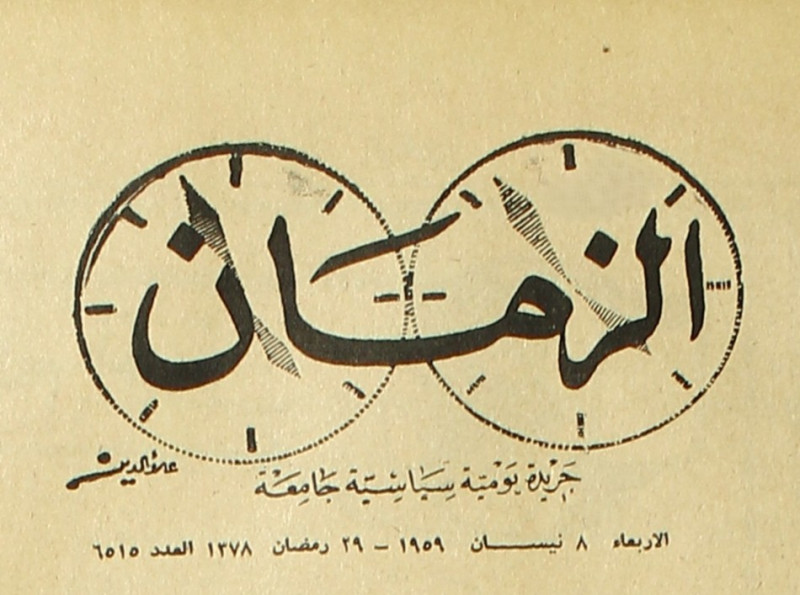 الزمان
جَرِيْدَة يَوْمِيّة سِيَاسِيّة جَامِعَة
علاء الدين
الاربعاء ٨ نيســـان ١٩٥٩ – ٢٩ رمضان ١٣٧٨ العدد ٦٥١٥